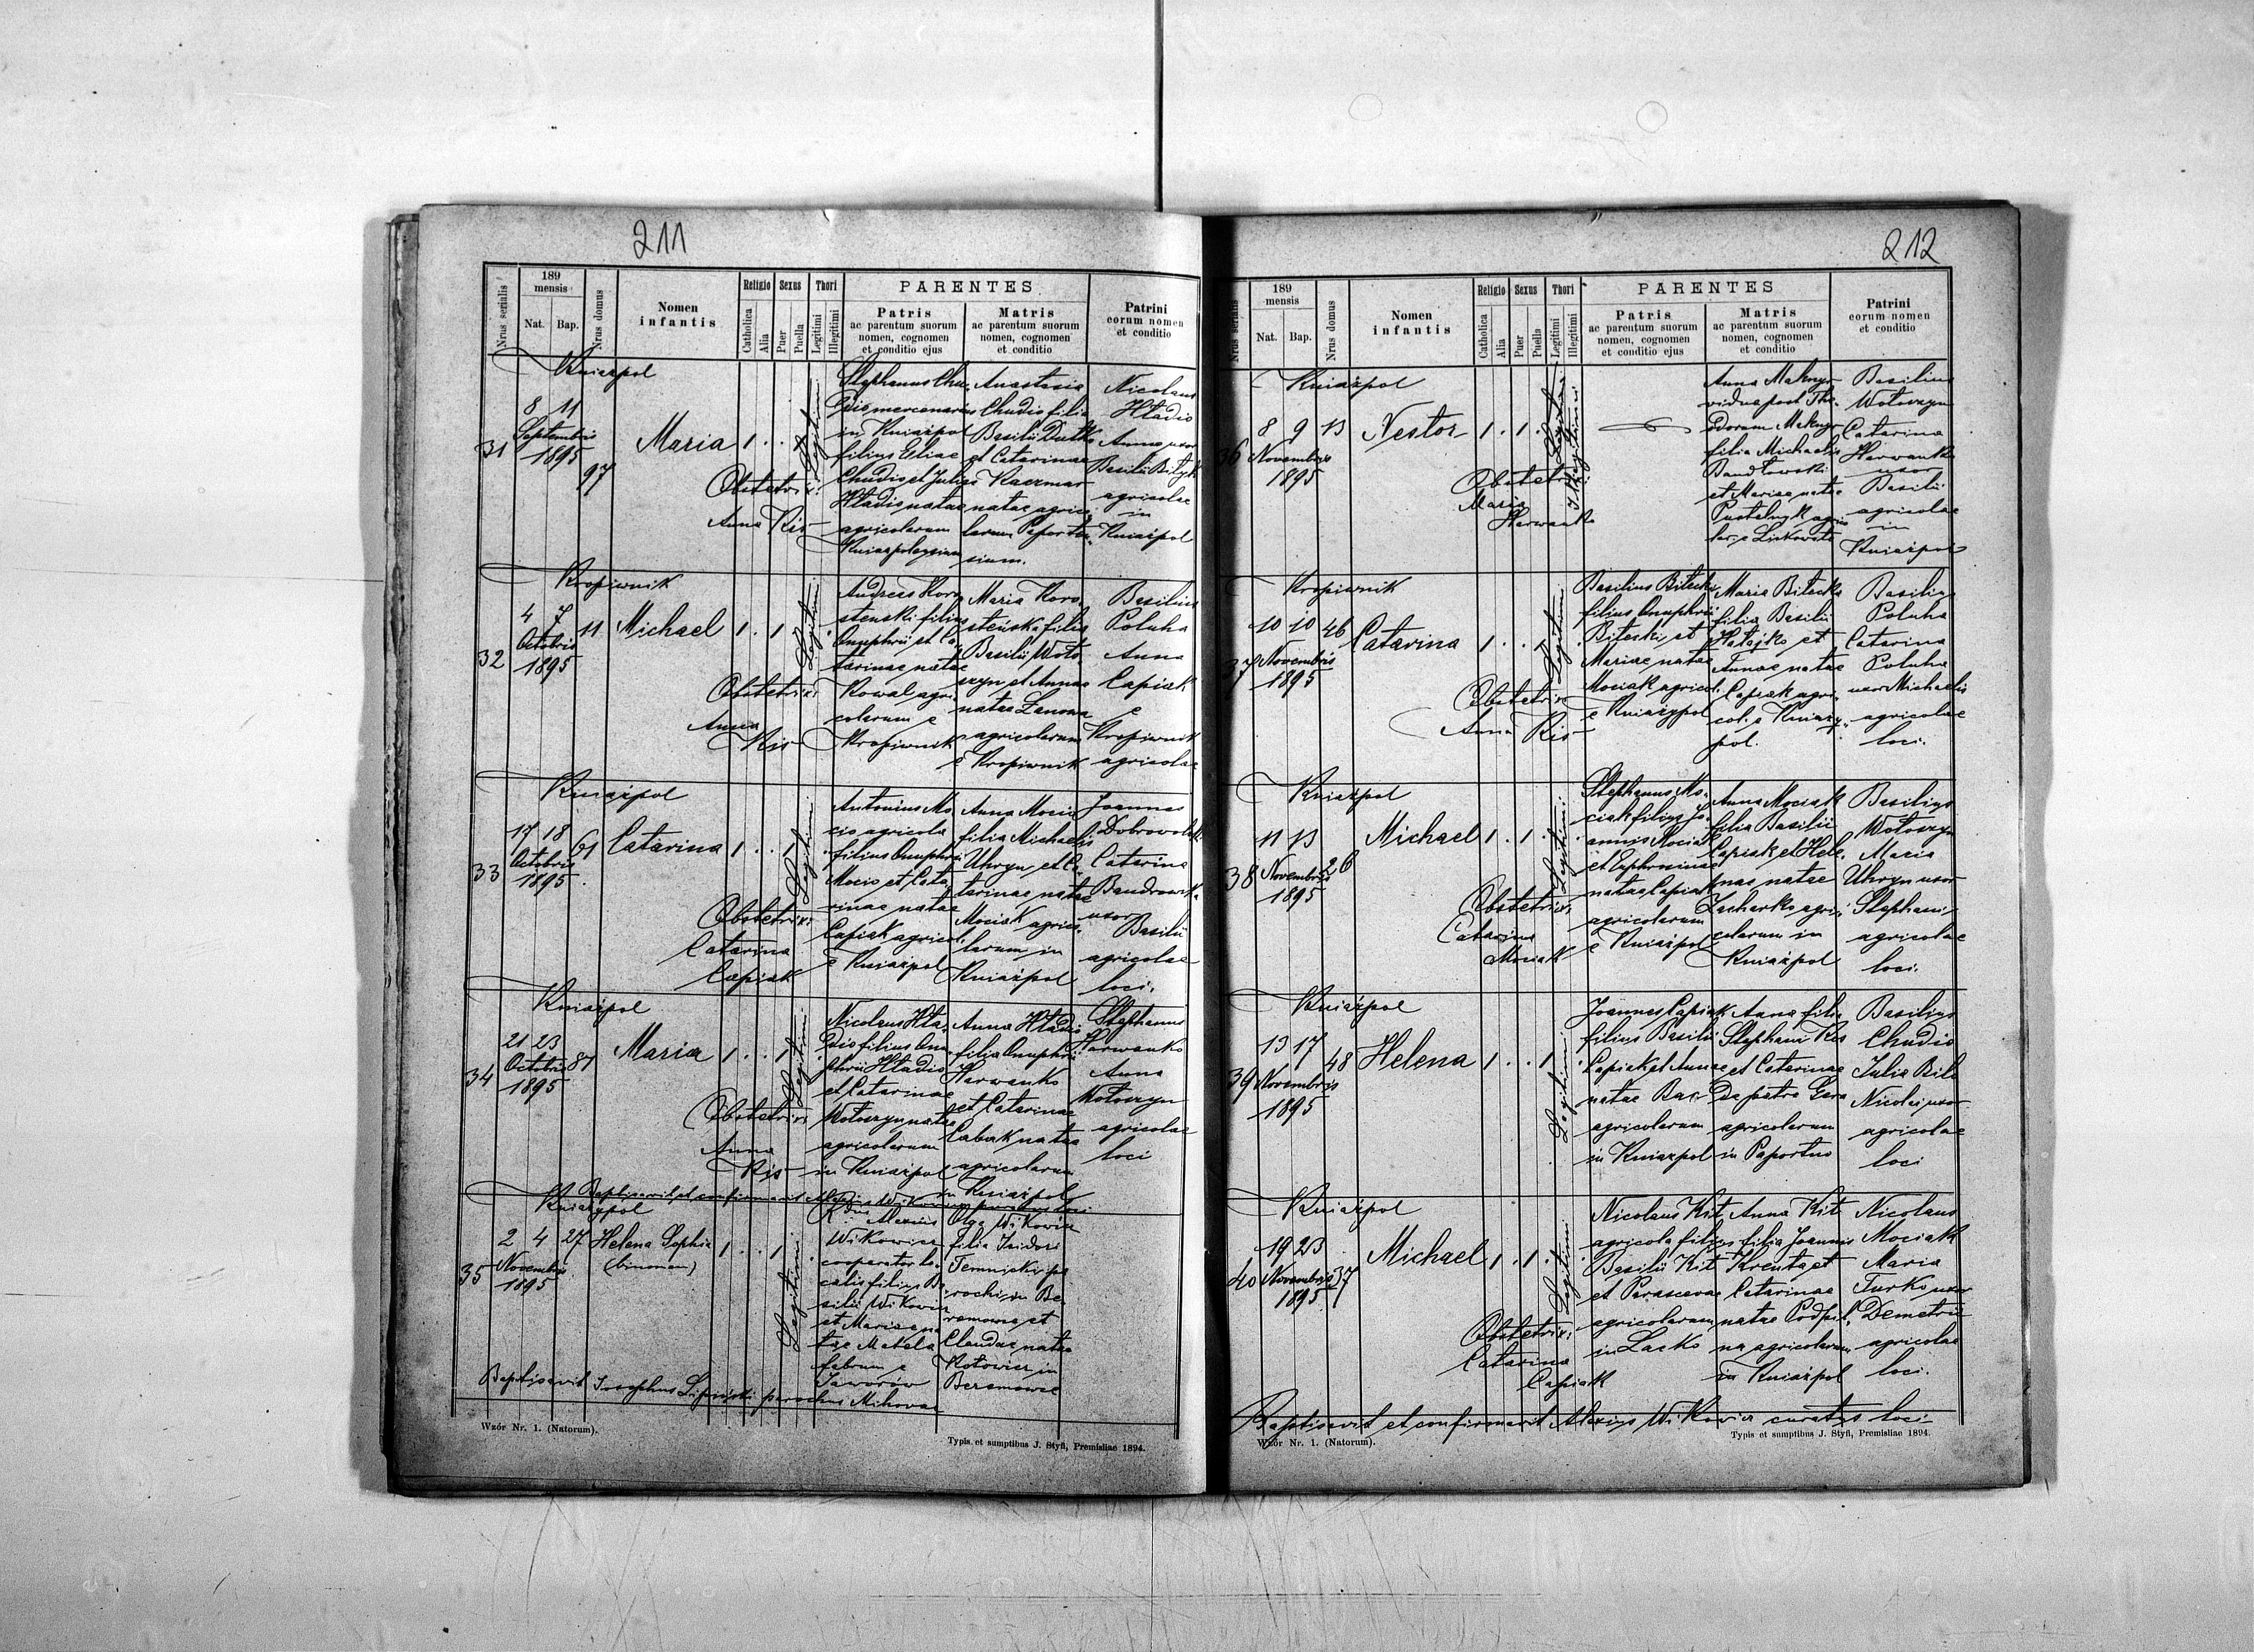 211
Nrus serialis
189
mensis
Nat.
Bap.
Nrus domus
Nomen
infantis
Religio
Catholica
Alia
Sexus
Puer
Puella
Thori
Legitimi
Illegitimi
PARENTES
Patris
ac parentum suorum
nomen, cognomen
et conditio ejus
Matris
ac parentum suorum
nomen, cognomen
et conditio
Patrini
eorum nomen
et conditio
Kniażpol
31
8 11
Septembris
1895
97
Maria
1 . . 1
Legitimi
Obstetrix:
Anna Kis
Stephanus Chu-
dio mercenarius
in Kniażpol
filius Eliae
Chudio et Juliae
Hładio natae
agricolarum
Kniazpolensium
Anastasia
Chudio filia
Basilii Dutko
et Catarinae
Kaczmar
natae agrico-
larum Paportn-
sium.
Nicolaus
Hładio
Anna uxor
Basilii
agricolae
in
Kniażpol
Kropiwnik
32
4 7
Octobris
1895
11
Michael
1 . 1
Legitimi
Obstetrix:
Anna
Kis
Andreas Koro-
stenski filius
Onuphrii et Ca-
tarinae natae
Kowal agri-
colarum e
Kropiwnik
Maria Koro-
steńska filia
Basilii Woło-
szyn et Annae
natae
agricolarum
e Kropiwnik
Basilius
Poluha
Anna
Capiak
e
Kropiwnik
agricolae
Kniażpol
33
17 18
Octobris
1895
61
Catarina
1 . . 1
Legitimi
Obstetrix:
Catarina
Capiak
Antonius Mo-
cio agricola
filius Onuphrii
Mocio et Cata-
rinae natae
Capiak agricol.
e Kniażpol
Anna Mocio
filia Michaelis
Uhryn et Ca-
tarinae natae
Mociak agrico-
larum in
Kniażpol
Joannes
Catarina
uxor
Basilii
agricolae
loci.
Kniażpol
34
21 23
Octobris
1895
87
Maria
1 . . 1
Legitimi
Obstetrix:
Anna
Kis
Nicolaus Hła-
dio filius Onu-
phrii Hładio
et Catarinae
Wołoszyn natae
agricolarum
in Kniażpol
Anna Hładio
filia Onuphrii
Harwanko
et Catarinae
natae
agricolarum
in Kniażpol
Stephanus
Harwanko
Anna
Wołoszyn
agricolae
loci
Baptisavit et confirmavit Alexius Wikowicz
Kniażypol
35
2 4
Novembris
1895
27
Helena Sophia
(binomen)
1 . . 1
Legitimi
Rdus Alexius
Wikowicz
cooperator lo-
calis filius Ba-
silii Wikowicz
et Mariae na-
tae
fabrum e
Jaworów
Olga Wikowicz
filia Isidori
Temnicki pa-
rochi in Be-
rezmowce et
Claudae natae
Kotowicz in
Berezmowce
Baptisavit Josephus Lipiński parochus
Wzór Nr. 1. (Natorum).
Typis et sumptibus J. Styfi, Premisliae 1894.
212
Nrus serialis
189
mensis
Nat.
Bap.
Nrus domus
Nomen
infantis
Religio
Catholica
Alia
Sexus
Puer
Puella
Thori
Legitimi
Illegitimi
PARENTES
Patris
ac parentum suorum
nomen, cognomen
et conditio ejus
Matris
ac parentum suorum
nomen, cognomen
et conditio
Patrini
eorum nomen
et conditio
Kniażpol
36
8 9
Novembris
1895
13
Nestor
1 . 1
Illegitimi
Obstetrix
Maria
Harwanko
Anna
vidua post The-
odorum
filia Michaelis
et Mariae natae
Basilius
Wołoszyn
Catarina
Harwanko
uxor
Basilii
agricolae
in
Kniażpol
Kropiwnik
37
10 10
Novembris
1895
46
Catarina
1 . . 1
Legitimi
Obstetrix
Anna Kis
Basilius Bilecki
filius Onuphrii
Bilecki et
Mariae natae
Mociak agricol.
e Kniażypol
Maria Bilecka
filia Basilii
Hatajko et
Annae natae
Capiak agri-
col. e Kniaży-
pol.
Basilius
Poluha
Catarina
Poluha
uxor Michaelis
agricolae
loci.
Kniażpol
38
11 13
Novembris
1895
26
Michael
1 . 1
Legitimi
Obstetrix:
Catarina
Mociak
Stephanus Mo-
ciak filius Jo-
annis Mociak
et Euphrosinae
natae Capiak
agricolarum
e Kniażpol
Anna Mociak
filia Basilii
Capiak et Hele-
nae natae
Zacharko agri-
colarum in
Kniażpol
Basilius
Wołoszyn
Maria
Uhryn uxor
Stephani
agricolae
loci.
Kniażpol
39
13 17
Novembris
1895
48
Helena
1 . . 1
Legitimi
Joannes Capiak
filius Basilii
Capiak et Annae
natae
agricolarum
in Kniażpol
Anna filia
Stephani Kis
et Catarinae
agricolarum
in Paportno
Basilius
Chudio
Julia
Nicolai uxor
agricolae
loci
Kniażpol
40
19 23
Novembris
1895
37
Michael
1 . 1
Legitimi
Obstetrix:
Catarina
Capiak
Nicolaus Kit
agricola filius
Basilii Kit
et Parascevae
agricolarum
in Lacko
Anna Kit
filia Joannis
Kreuta et
Catarinae
natae
agricolarum
in Kniażpol
Nicolaus
Mociak
Maria
Turko uxor
Demetrii
agricolae
loci.
Baptisavit et confirmavit Alexius Wikowicz curatus loci
Wzór Nr. 1. (Natorum).
Typis et sumptibus J. Styfi, Premisliae 1894.